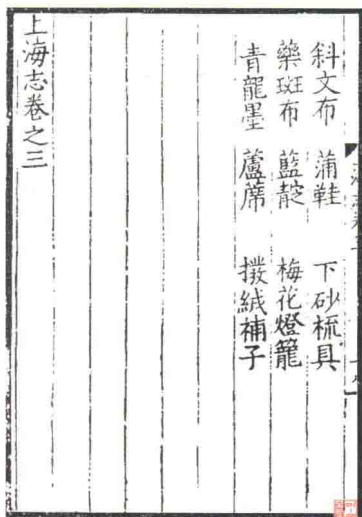 斜文布　蒲鞋　下砂梳具
藥斑布　藍靛　梅花燈籠
青龍墨　蘆蓆　撥絨補子
上海志卷之三